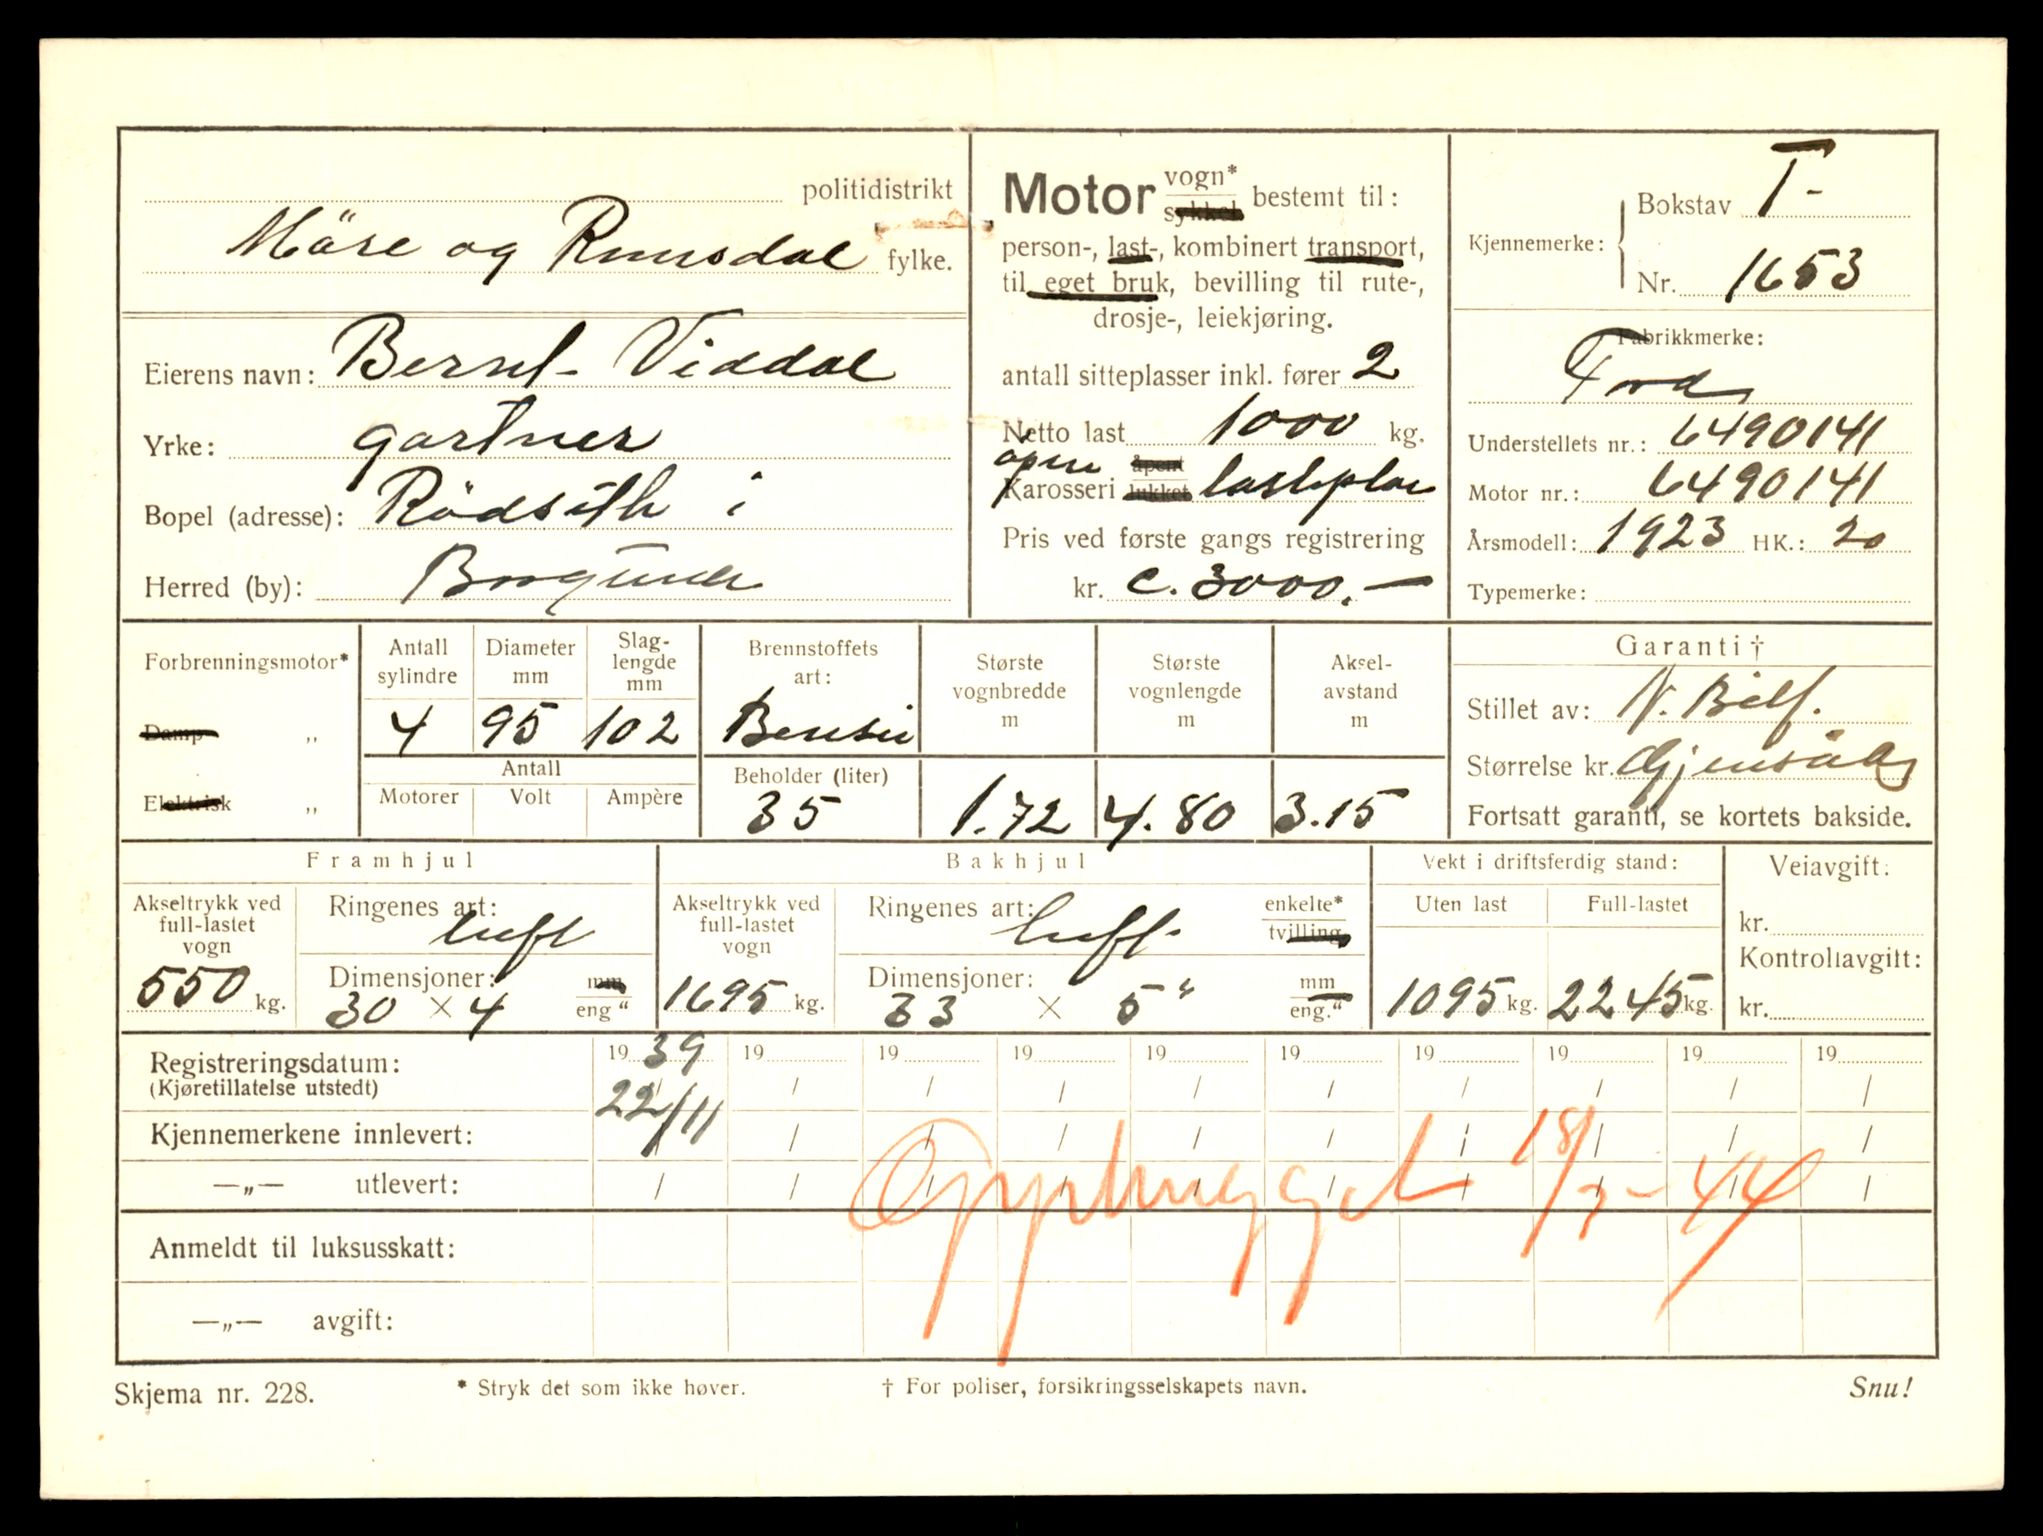 politidistrikt
Möre og Romsdal fylke.
Eierens navn: Bernt Viddal
Yrke: gartner
Bopel (adresse): Rödseth i
Herred (by): Borgund
Motor vogn* sykkel bestemt til:
person-, last-, kombinert transport,
til eget bruk, bevilling til rute-,
drosje-, leiekjøring.
antall sitteplasser inkl. fører 2
Netto last 1000 kg.
åpen åpent
Karosseri lukket lasteplan
Pris ved første gangs registrering
kr. c. 3000,—
Kjennemerke: Bokstav T-
Nr. 1653
Fabrikkmerke:
Ford
Understellets nr.: 6490141
Motor nr.: 6490141
Årsmodell: 1923 HK.: 20
Typemerke:
Forbrenningsmotor*
Damp „
Elektrisk „
Antall sylindre Diameter mm Slaglengde mm
4 95 102
Antall
Motorer Volt Ampère
Brennstoffets art:
Bensin
Beholder (liter)
35
Største vognbredde m
1.72
Største vognlengde m
4.80
Aksel-avstand m
3.15
Garanti †
Stillet av: N. Bilf.
Størrelse kr. Gjensidig
Fortsatt garanti, se kortets bakside.
Framhjul
Akseltrykk ved full-lastet vogn
550 kg.
Ringenes art: luft
Dimensjoner: mm
30 × 4 eng “
Bakhjul
Akseltrykk ved full-lastet vogn
1695 kg.
Ringenes art: luft enkelte* tvilling
Dimensjoner: mm
33 × 5“ eng.“
Vekt i driftsferdig stand:
Uten last Full-lastet
1095 kg. 2245 kg.
Veiavgift:
kr.
Kontrollavgift:
kr.
Registreringsdatum: 19 39 19 19 19 19 19 19 19 19 19
(Kjøretillatelse utstedt) 22/11 / / / / / / / / /
Kjennemerkene innlevert: / / / / / / / / / /
—„— utlevert: / / / / / / / / / /
Opphugget 18/7-44
Anmeldt til luksusskatt:
—„— avgift:
Skjema nr. 228. * Stryk det som ikke høver. † For poliser, forsikringsselskapets navn. Snu!